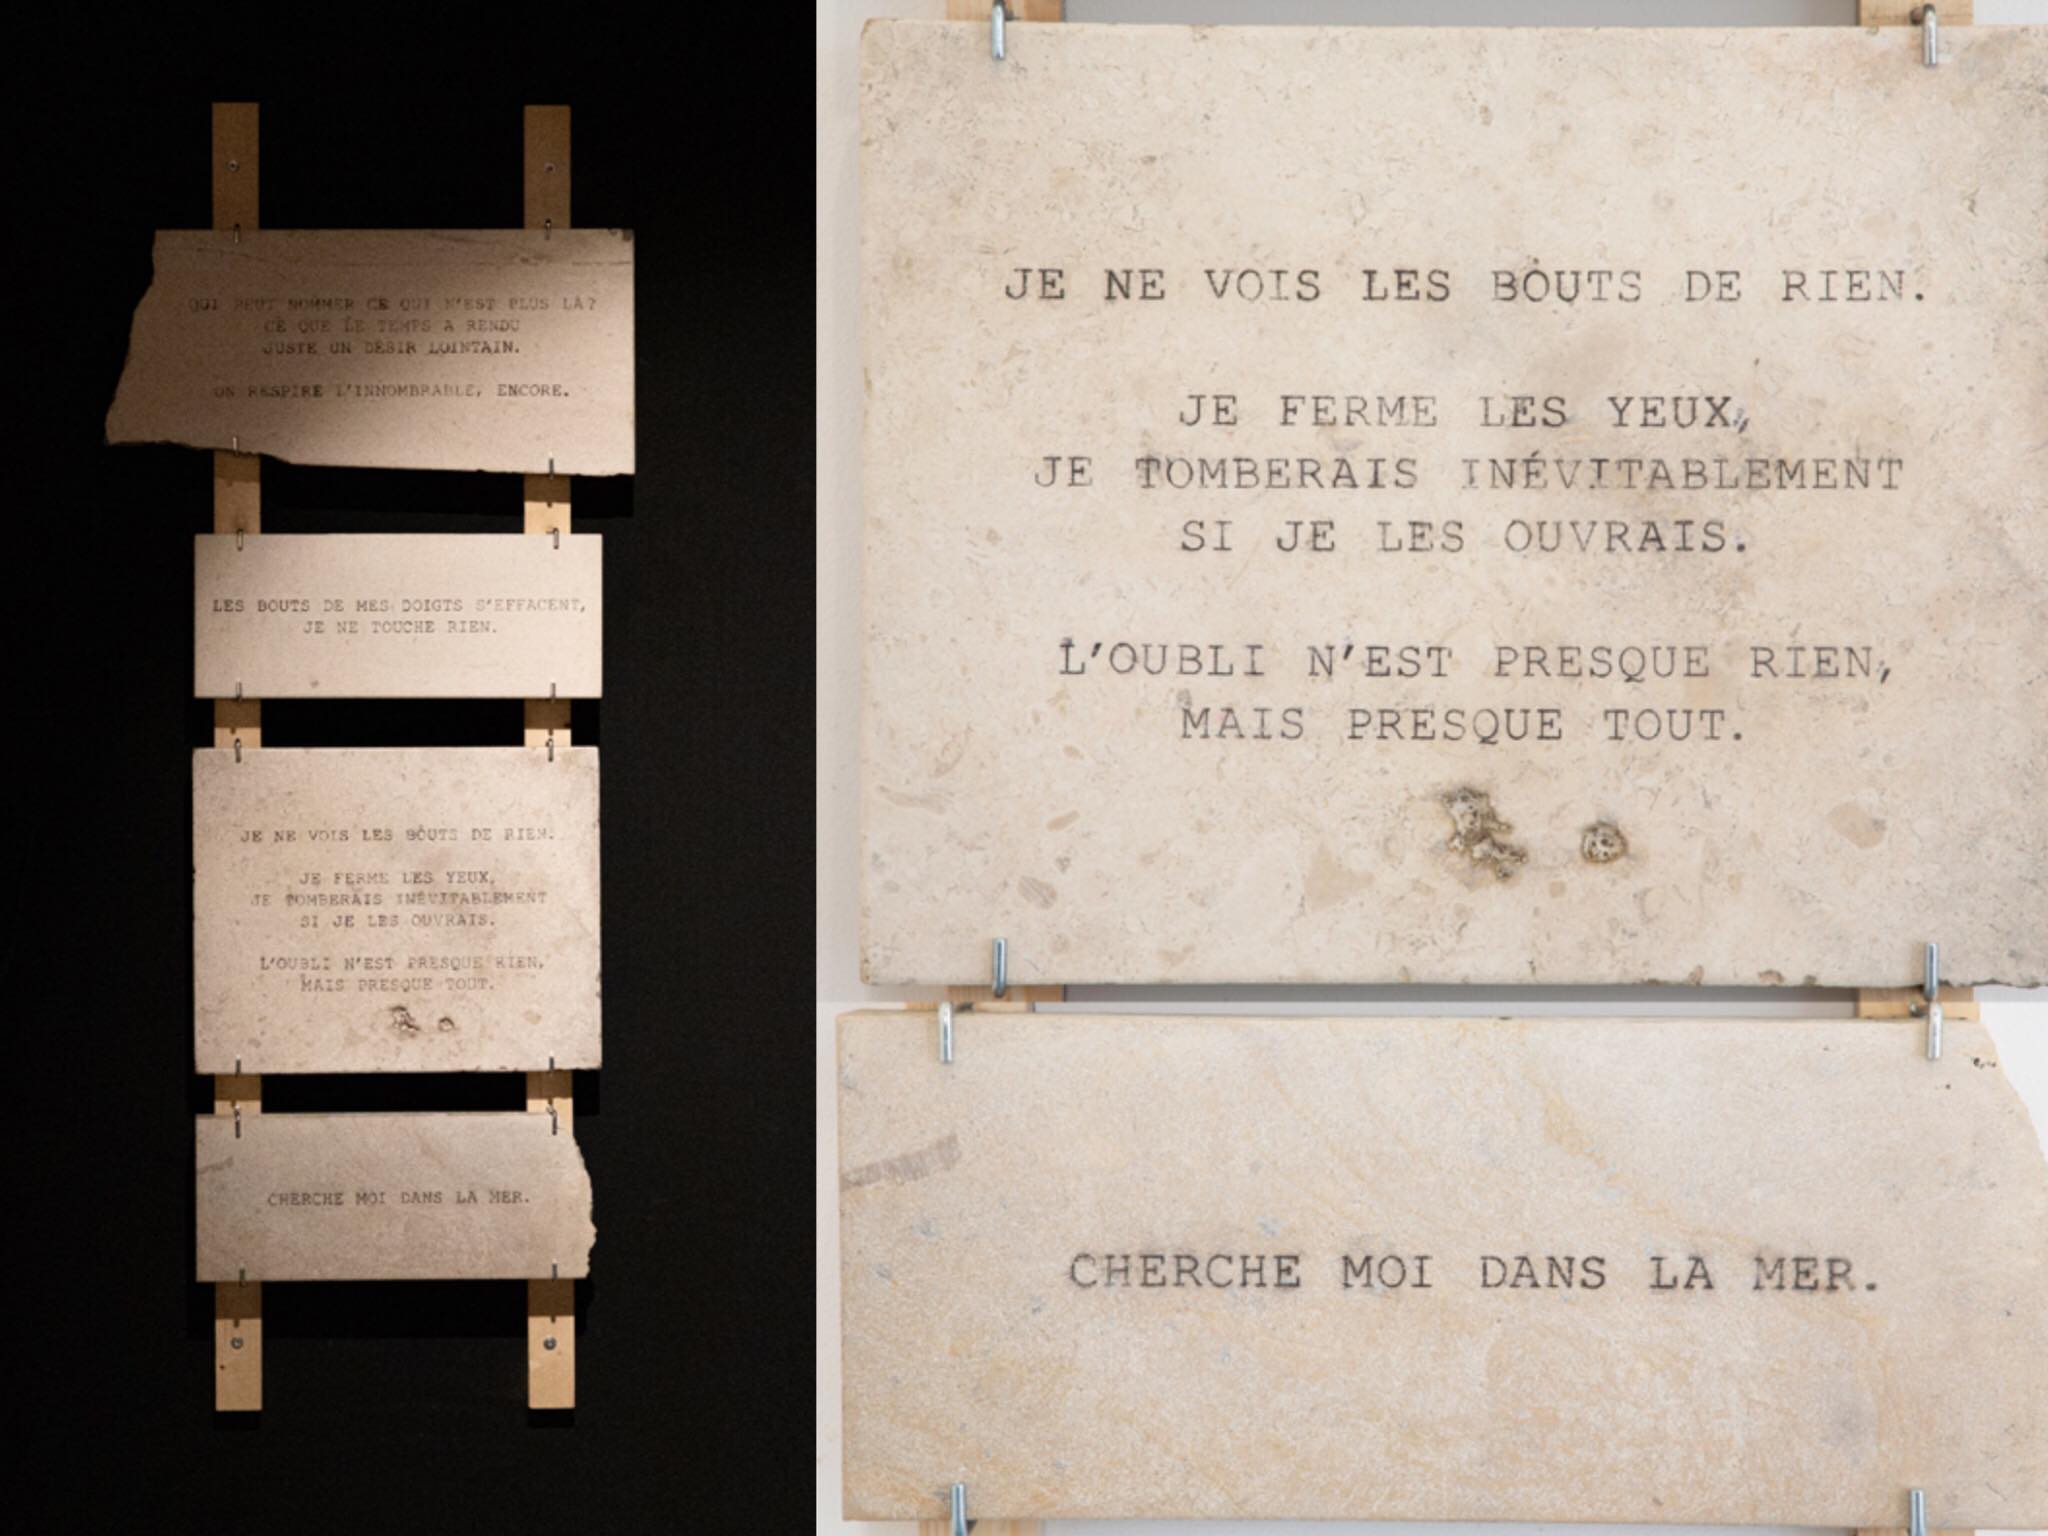 QUI PEUT NOMMER CE QUI N'EST PLUS LÀ?
CE QUE LE TEMPS A RENDU
JUSTE UN DÉSIR LOINTAIN.
ON RESPIRE L'INNOMBRABLE, ENCORE.
LES BOUTS DE MES DOIGTS S'EFFACENT,
JE NE TOUCHE RIEN.
JE NE VOIS LES BOUTS DE RIEN.
JE FERME LES YEUX,
JE TOMBERAIS INÉVITABLEMENT
SI JE LES OUVRAIS.
L'OUBLI N'EST PRESQUE RIEN,
MAIS PRESQUE TOUT.
CHERCHE MOI DANS LA MER.
JE NE VOIS LES BOUTS DE RIEN.
JE FERME LES YEUX,
JE TOMBERAIS INÉVITABLEMENT
SI JE LES OUVRAIS.
L'OUBLI N'EST PRESQUE RIEN,
MAIS PRESQUE TOUT.
CHERCHE MOI DANS LA MER.